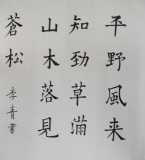 平野風来
知劲草滿
山木落見
蒼松
李青書